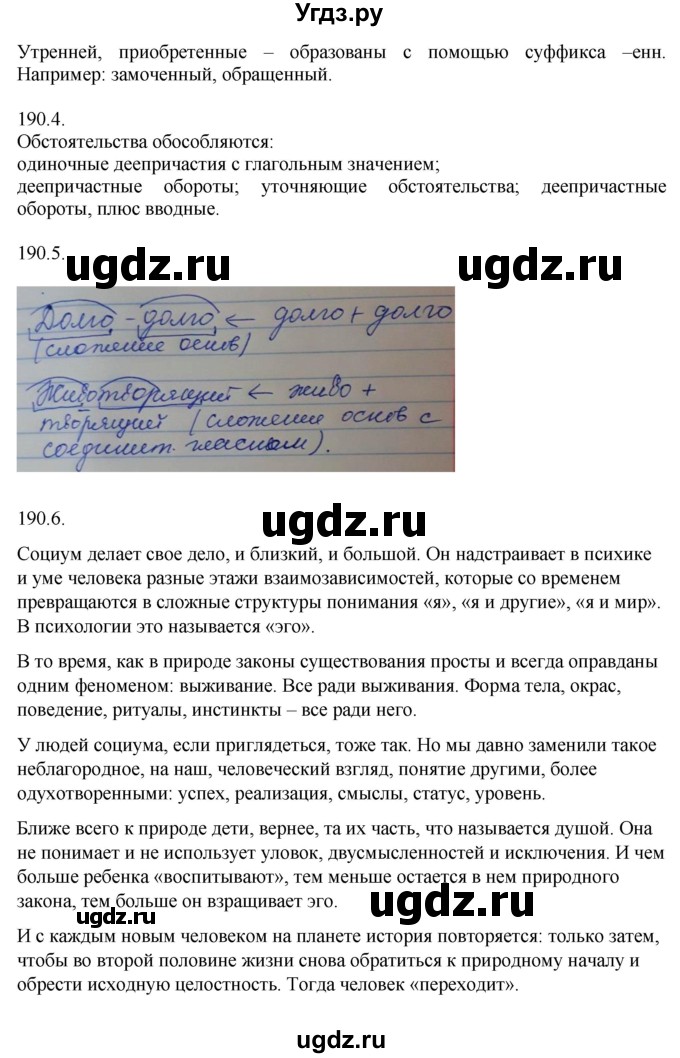 Угдз.ру
Утренней, приобретенные – образованы с помощью суффикса –енн.
Например: замоченный, обращенный.
190.4.
Обстоятельства обособляются:
одиночные деепричастия с глагольным значением;
деепричастные обороты; уточняющие обстоятельства; деепричастные
обороты, плюс вводные.
190.5.
ugdz.ru ugdz.ru
Долго - долго ← долго + долго
(сложение основ)
Животворящий ← живо +
творящий (сложение основ с
соединит. гласной).
ugdz.ru
190.6.
Социум делает свое дело, и близкий, и большой. Он надстраивает в психике
и уме человека разные этажи взаимозависимостей, которые со временем
превращаются в сложные структуры понимания «я», «я и другие», «я и мир».
В психологии это называется «эго».
В то время, как в природе законы существования просты и всегда оправданы
одним феноменом: выживание. Все ради выживания. Форма тела, окрас,
поведение, ритуалы, инстинкты – все ради него.
ugdz.ru ugdz.ru
У людей социума, если приглядеться, тоже так. Но мы давно заменили такое
неблагородное, на наш, человеческий взгляд, понятие другими, более
одухотворенными: успех, реализация, смыслы, статус, уровень.
Ближе всего к природе дети, вернее, та их часть, что называется душой. Она
не понимает и не использует уловок, двусмысленностей и исключения. И чем
больше ребенка «воспитывают», тем меньше остается в нем природного
закона, тем больше он взращивает эго.
ugdz.ru
И с каждым новым человеком на планете история повторяется: только затем,
чтобы во второй половине жизни снова обратиться к природному началу и
обрести исходную целостность. Тогда человек «переходит».
ugdz.ru